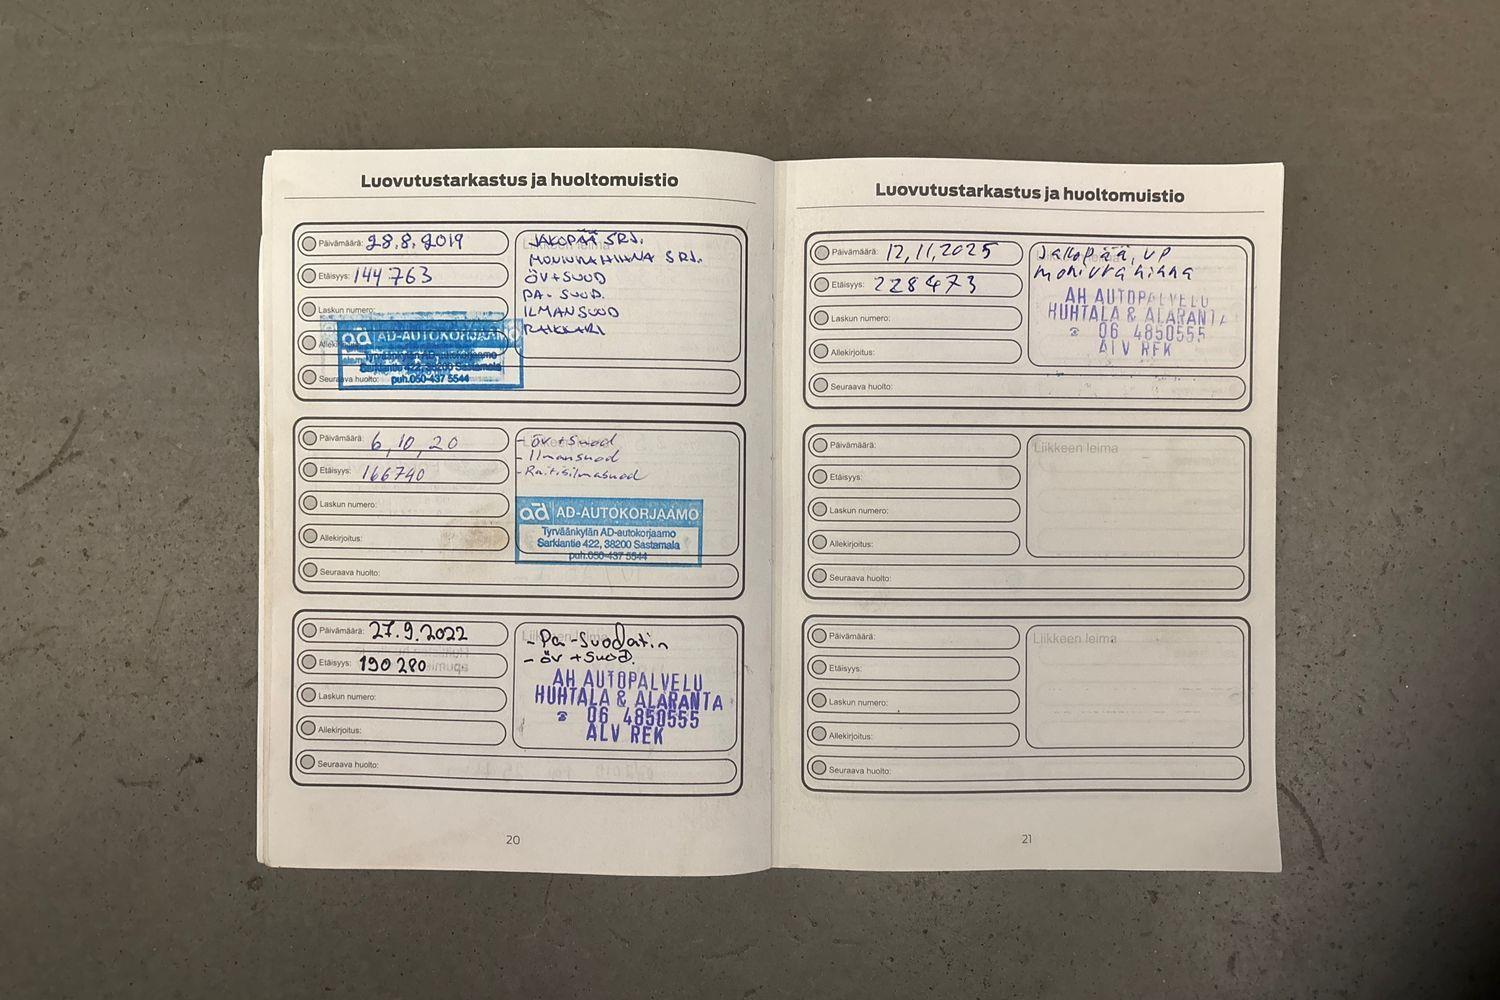 Luovutustarkastus ja huoltomuistio
Päivämäärä: 28.8.2019
Etäisyys: 144763
Laskun numero:
Seuraava huolto:
JAKOPÄÄ SRJ.
SRJ.
ÖV+SUOD
PA-SUOD.
ILMANSUOD
RAIKKARI
ad AD-AUTOKORJAAMO
Tyrväänkylän AD-autokorjaamo
Sarkiantie 422, 38200 Sastamala
puh.050-437 5544
Päivämäärä: 6,10,20
Etäisyys: 166740
Laskun numero:
Allekirjoitus:
Seuraava huolto:
- öv+suod
- Ilmansuod
- Raitisilmasuod
ad AD-AUTOKORJAAMO
Tyrväänkylän AD-autokorjaamo
Sarkiantie 422, 38200 Sastamala
puh.050-437 5544
Päivämäärä: 27.9.2022
Etäisyys: 190280
Laskun numero:
Allekirjoitus:
Seuraava huolto:
Liikkeen leima
- Pa-Suodatin
- öv+suod.
AH AUTOPALVELU
HUHTALA & ALARANTA
☎ 06 4850555
ALV REK
20
Luovutustarkastus ja huoltomuistio
Päivämäärä: 12,11,2025
Etäisyys: 228473
Laskun numero:
Allekirjoitus:
Seuraava huolto:
Jakopää, VP
moniurahihna
AH AUTOPALVELU
HUHTALA & ALARANTA
☎ 06 4850555
ALV REK
Päivämäärä:
Etäisyys:
Laskun numero:
Allekirjoitus:
Seuraava huolto:
Liikkeen leima
Päivämäärä:
Etäisyys:
Laskun numero:
Allekirjoitus:
Seuraava huolto:
Liikkeen leima
21